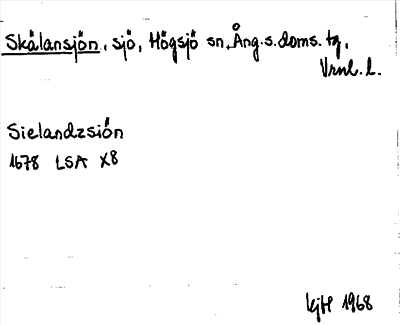 Skålansjön, sjö, Högsjö sn, Ång.s.doms.tg,
Vrnl. l.
Sielandzsiön
1678 LSA X8
KjH 1968